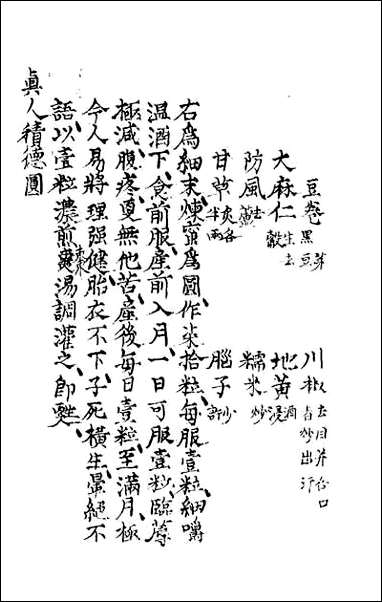 豆卷黑豆芽 川椒去目并合口者炒出汗
大麻仁生去殼 地黃酒浸
防風去蘆 糯米炒
甘草炙各半兩 腦子少許
右為細末煉蜜為圓作柒拾粒每服壹粒細嚼
溫酒下食前服産前入月一日可服壹粒臨蓐
極減腹疼更無他苦産後每日壹粒至滿月極
令人易將理强健胎衣不下子死橫生暈絕不
語以壹粒濃煎棗湯調灌之即甦
真人積德圓